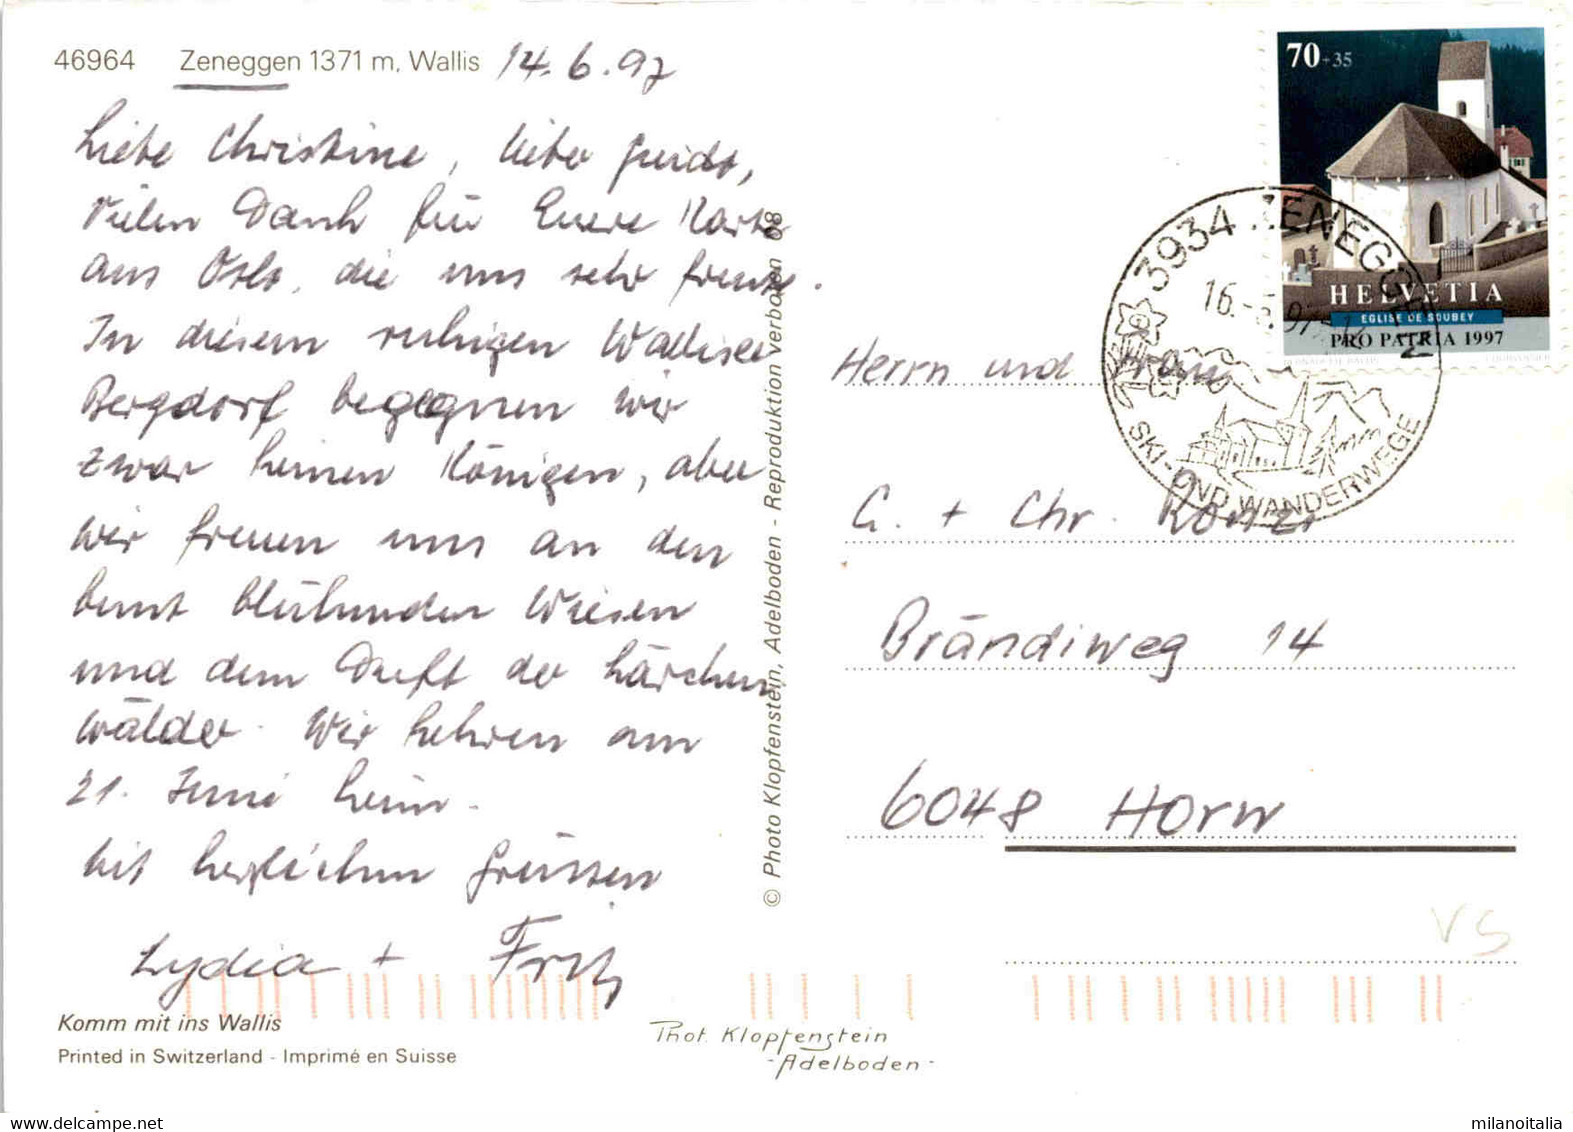 46964 Zeneggen 1371 m, Wallis 14.6.97
Liebe Christine, lieber Guido,
Vielen Dank für Euere Karte
aus Oslo, die uns sehr freute.
In diesem ruhigen Walliser
Bergdorf begegnen wir
zwar keinen Königen, aber
wir freuen uns an den
bunt blühenden Wiesen
und dem Duft der Lärchen
wälder. Wir kehren am
21. Juni heim.
Mit herzlichen Grüssen
Lydia + Fritz
Komm mit ins Wallis
Printed in Switzerland - Imprimé en Suisse
© Photo Klopfenstein, Adelboden - Reproduktion verboten 68
Phot. Klopfenstein
- Adelboden -
70+35
HELVETIA
EGLISE DE SOUBEY
PRO PATRIA 1997
3934 ZENEGGEN
SKI- UND WANDERWEGE
Herrn und Frau
G. + Chr.
Brändiweg 14
6048 Horw
VS
milanoitalia